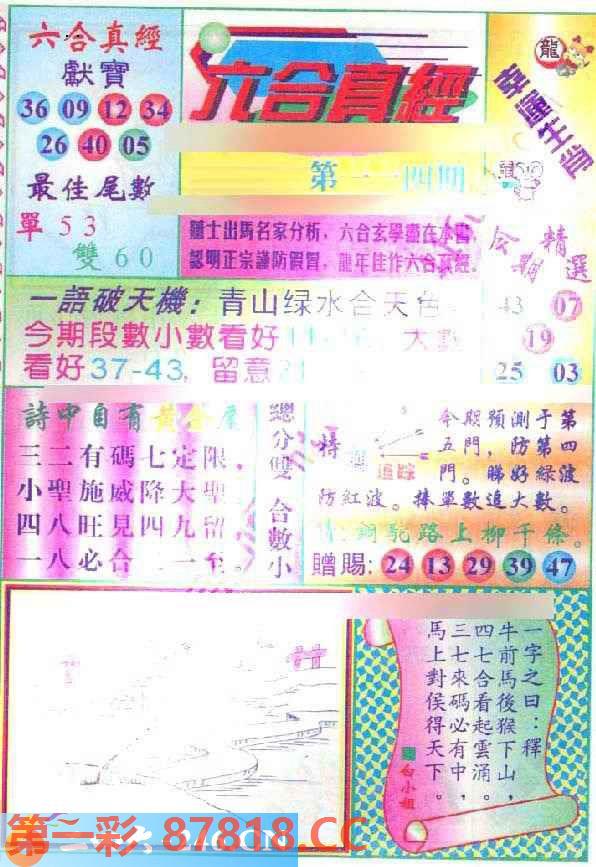 六合真經
獻寶
36 09 12 34
26 40 05
最佳尾數
單 53
雙 60
六合真經
第一一四期
幸運生肖
龍
鼠
隨士出馬名家分析，六合玄學盡在本書，
認明正宗謹防假冒，龍年佳作六合真經。
今期精選
43 07
19
25 03
一語破天機：青山绿水合天色
今期段數小數看好 大數
看好37-43，留意
詩中自有黃金屋
三二有碼七定限。
小聖施威降大聖
四八旺見四九留
一八必合二一至。
總分雙 合數小
特
追踪
今期預測于第
五門，防第四
門。睇好綠波
防紅波。捧單數追大數。
銅駝路上柳千條。
贈賜：24 13 29 39 47
一字之曰：釋
牛前馬後猴下山，
四七合看起雲涌。
三七來碼必有中，
馬上對侯得天下。
白小姐
第一彩 87818.CC